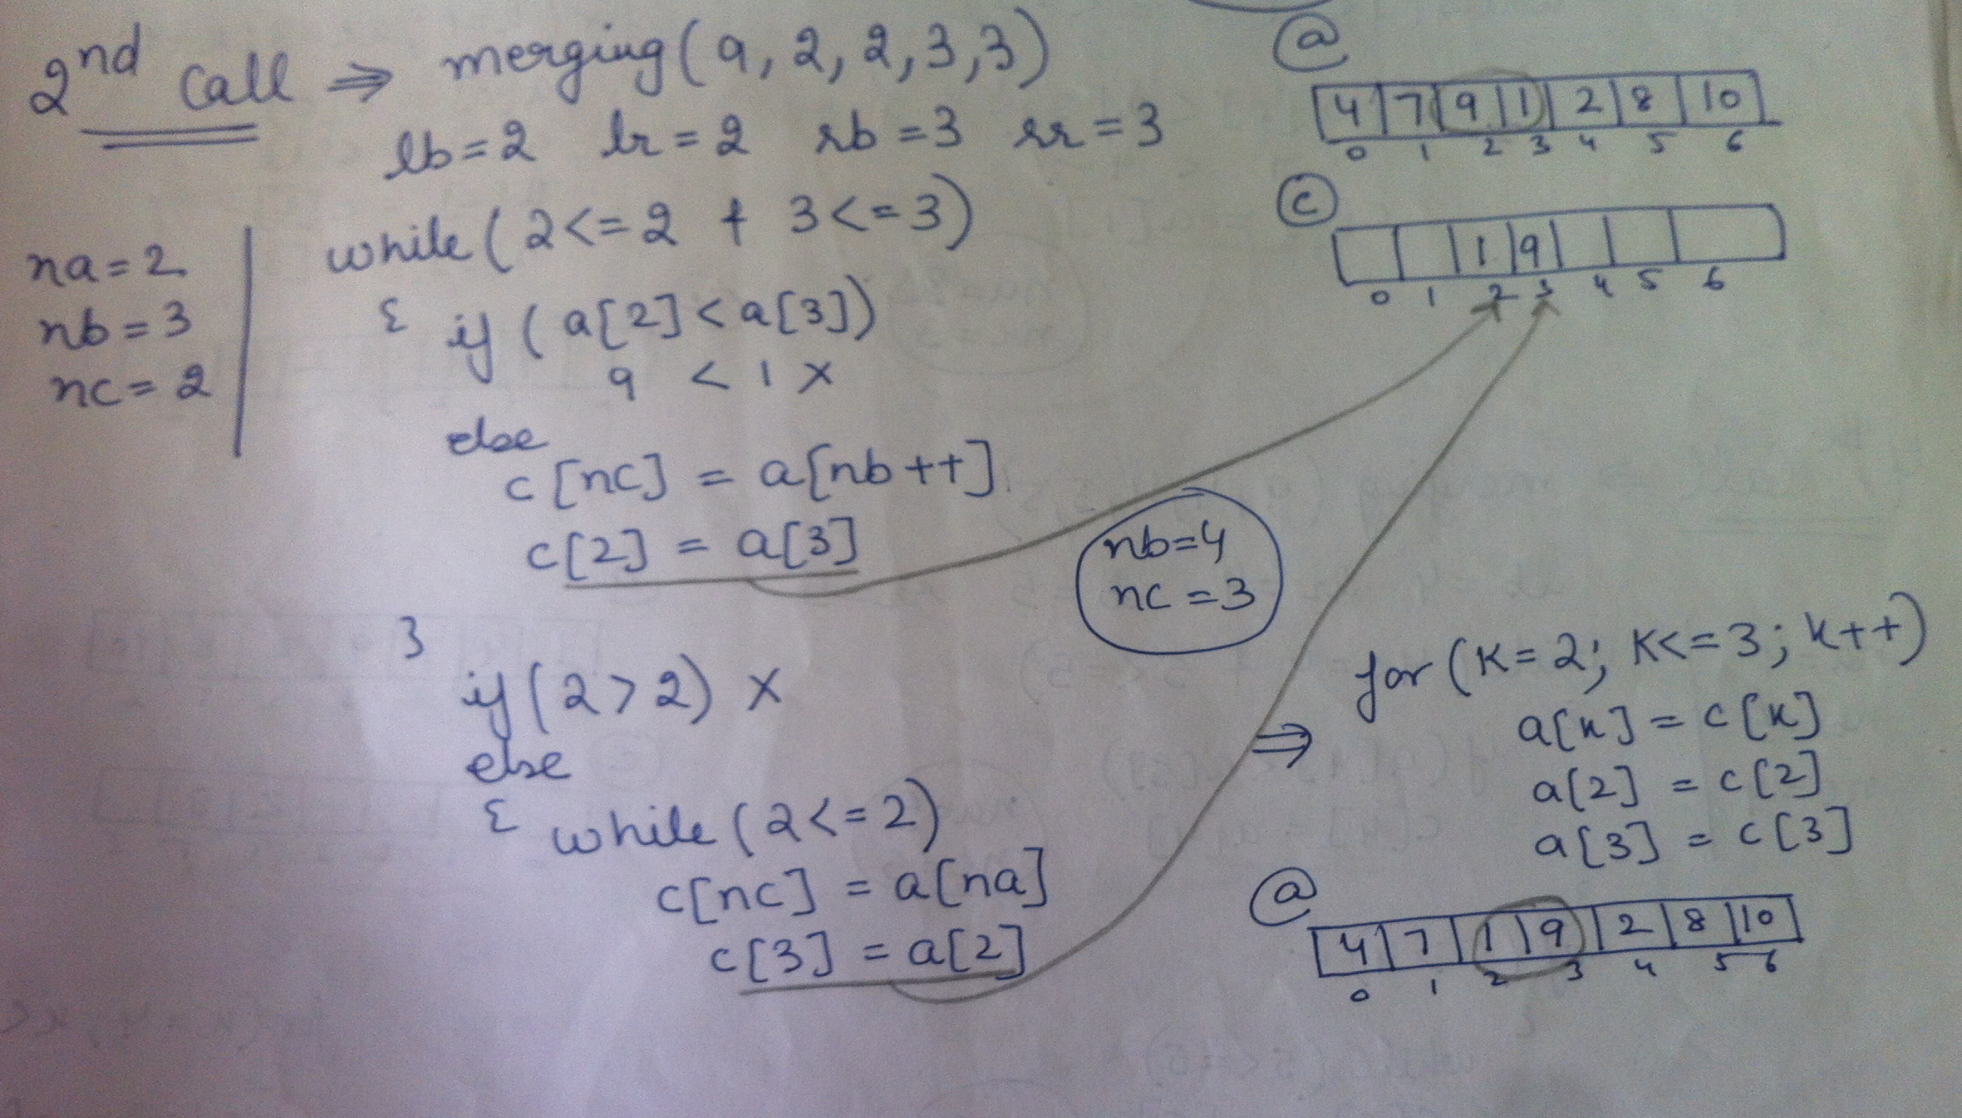 2nd call ⇒ merging(a, 2, 2, 3, 3)
lb=2 lr=2 rb=3 rr=3
na=2
nb=3
nc=2
while(2<=2 + 3<=3)
{ if (a[2]<a[3])
9 < 1 x
else
c[nc] = a[nb++]
c[2] = a[3]
nb=4
nc=3
}
if(2>2) x
else
{ while(2<=2)
c[nc] = a[na]
c[3] = a[2]
a
4 7 9 1 2 8 10
0 1 2 3 4 5 6
c
1 9
0 1 2 3 4 5 6
⇒ for(k=2; k<=3; k++)
a[k] = c[k]
a[2] = c[2]
a[3] = c[3]
a
4 7 1 9 2 8 10
0 1 2 3 4 5 6